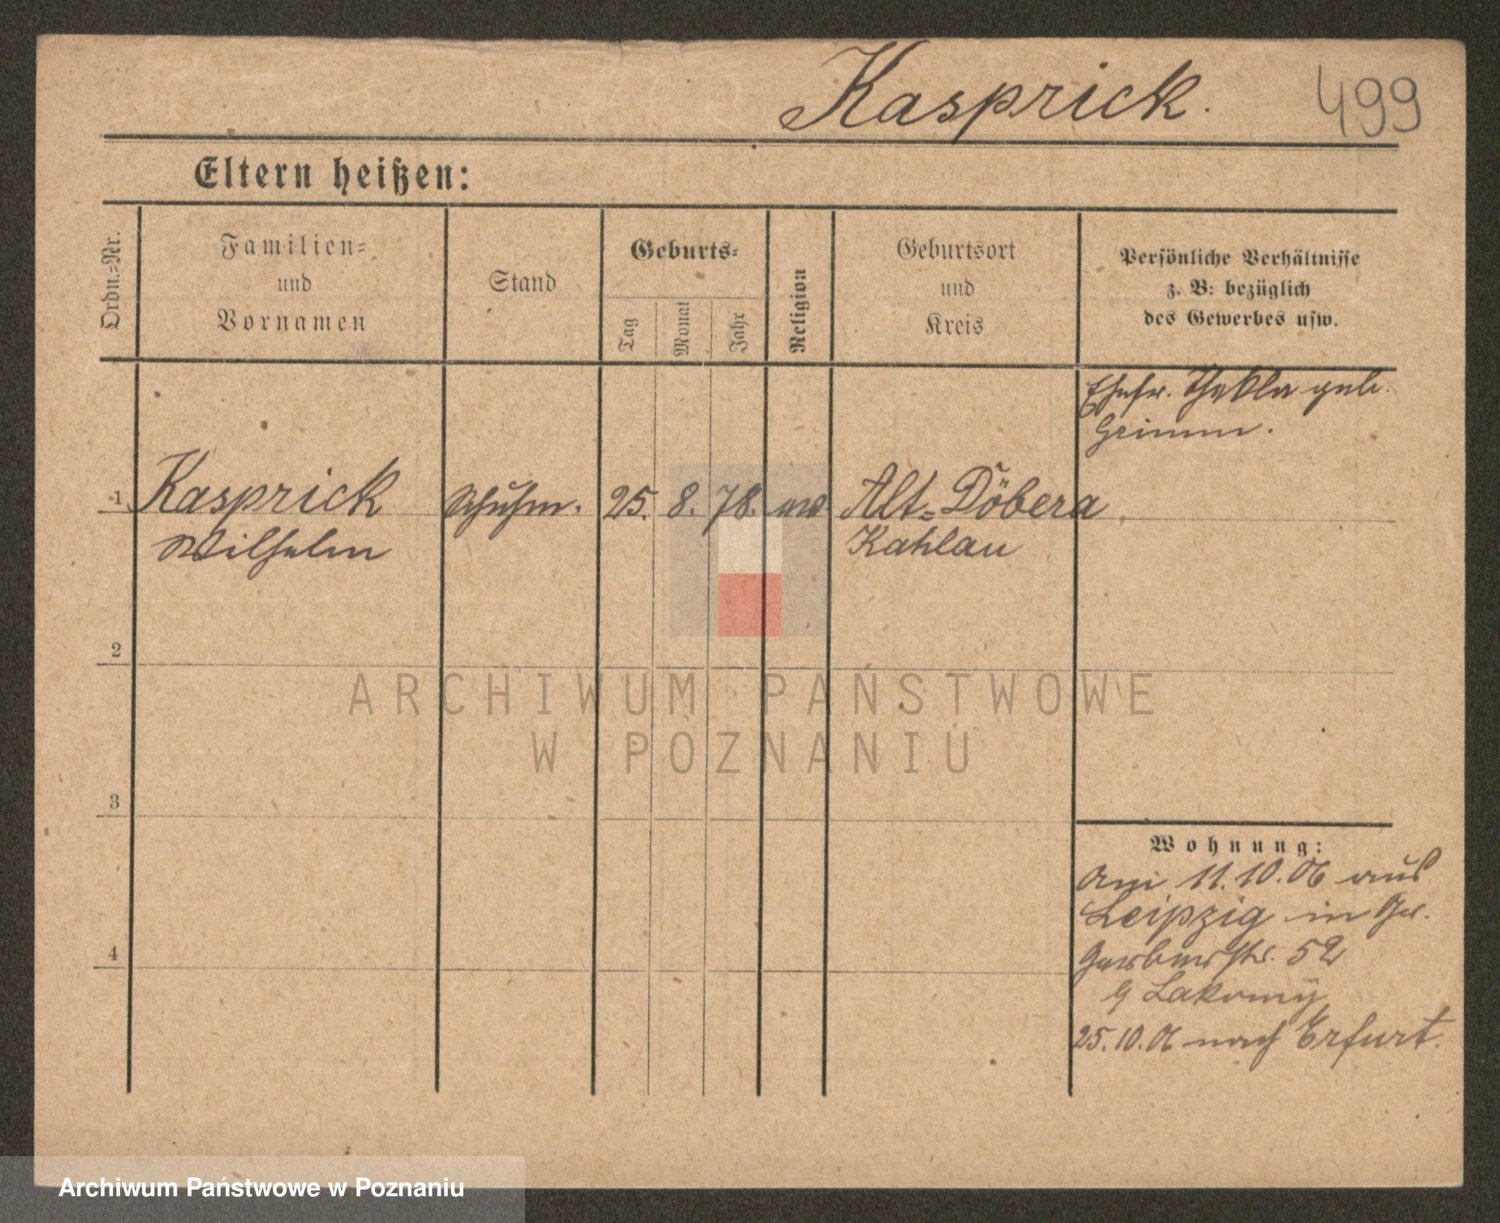 Kasprick.
499
Eltern heißen:
Ordn.=Nr.
Familien=
und
Vornamen
Stand
Geburts=
Tag
Monat
Jahr
Religion
Geburtsort
und
Kreis
Persönliche Verhältnisse
z. B: bezüglich
des Gewerbes usw.
Ehefr. Thekla geb.
Grimm.
1 Kasprick Schuhm. 25. 8. 78. Alt=Döbera
Wilhelm Kahlau
2
3
4
Wohnung:
Am 11.10.06 aus
Leipzig in Gr.
Gerberstr. 52
Lakomy
25.10.06 nach Erfurt.
ARCHIWUM PAŃSTWOWE
W POZNANIU
Archiwum Państwowe w Poznaniu